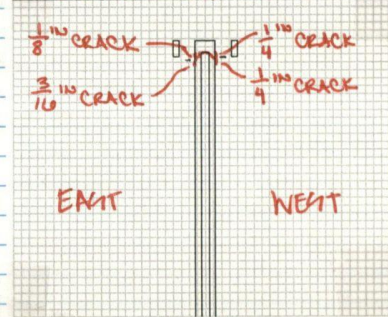 1/8 IN CRACK
1/4 IN CRACK
3/16 IN CRACK
1/4 IN CRACK
EAST
WEST